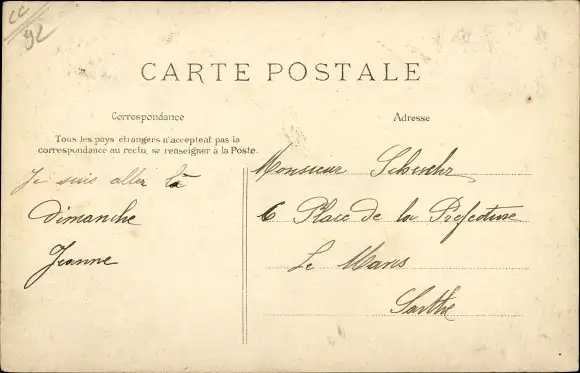 cc
92
CARTE POSTALE
Correspondance
Tous les pays étrangers n'acceptent pas la
correspondance au recto, se renseigner à la Poste.
Adresse
Je suis aller là
dimanche
Jeanne
Monsieur
6 Place de la Préfecture
Le Mans
Sarthe